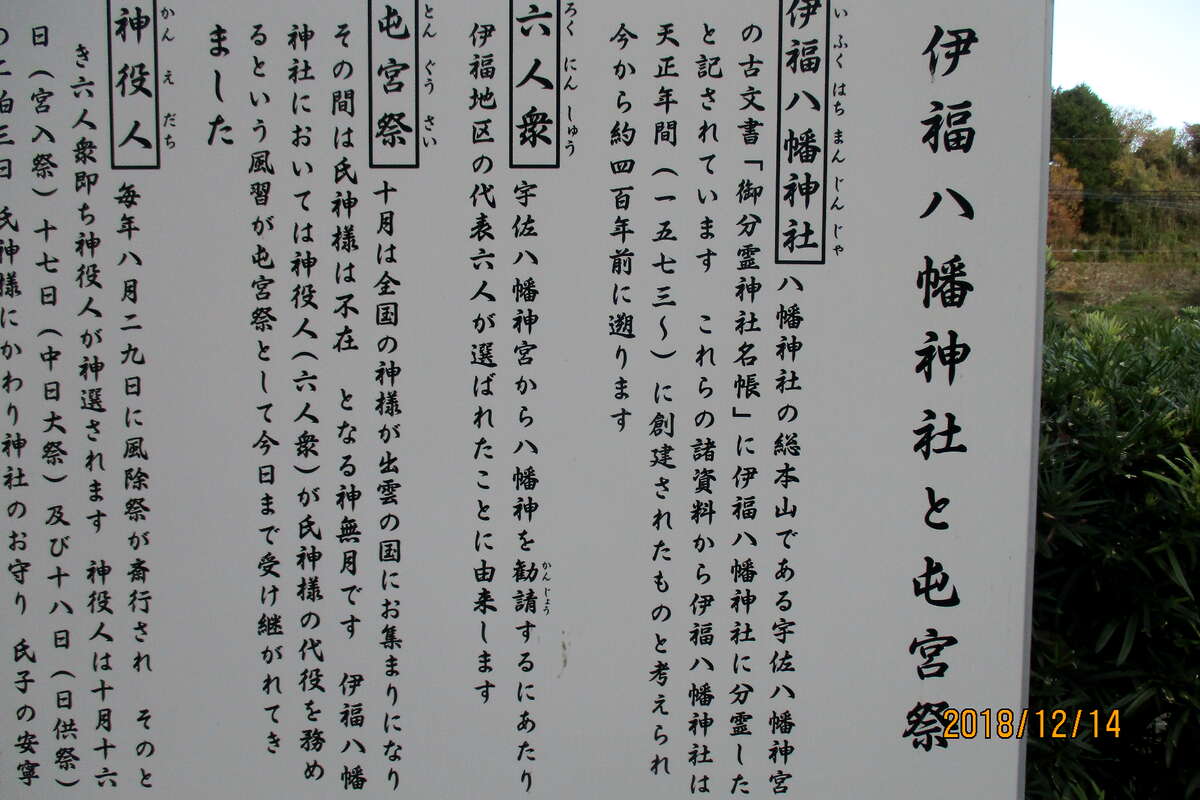 伊福八幡神社と屯宮祭
いふくはちまんじんじゃ
伊福八幡神社 八幡神社の総本山である宇佐八幡神宮
の古文書「御分霊神社名帳」に伊福八幡神社に分霊した
と記されています これらの諸資料から伊福八幡神社は
天正年間（一五七三〜）に創建されたものと考えられ
今から約四百年前に遡ります
ろくにんしゅう
六人衆 宇佐八幡神宮から八幡神を勧請するにあたり
かんじょう
伊福地区の代表六人が選ばれたことに由来します
とんぐうさい
屯宮祭 十月は全国の神様が出雲の国にお集まりになり
その間は氏神様は不在 となる神無月です 伊福八幡
神社においては神役人（六人衆）が氏神様の代役を務め
るという風習が屯宮祭として今日まで受け継がれてき
ました
かんえだち
神役人 毎年八月二九日に風除祭が斎行され そのと
き六人衆即ち神役人が神選されます 神役人は十月十六
日（宮入祭）十七日（中日大祭）及び十八日（日供祭）
の二泊三日 氏神様にかわり神社のお守り 氏子の安寧
2018/12/14